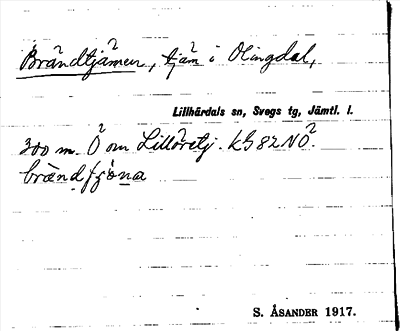 Brändtjärnen, tjärn i Olingdal,
Lillhärdals sn, Svegs tg, Jämtl. l.
300 m. Ö om Lillöretj. KG 82 NÖ.
brænd
S. ÅSANDER 1917.